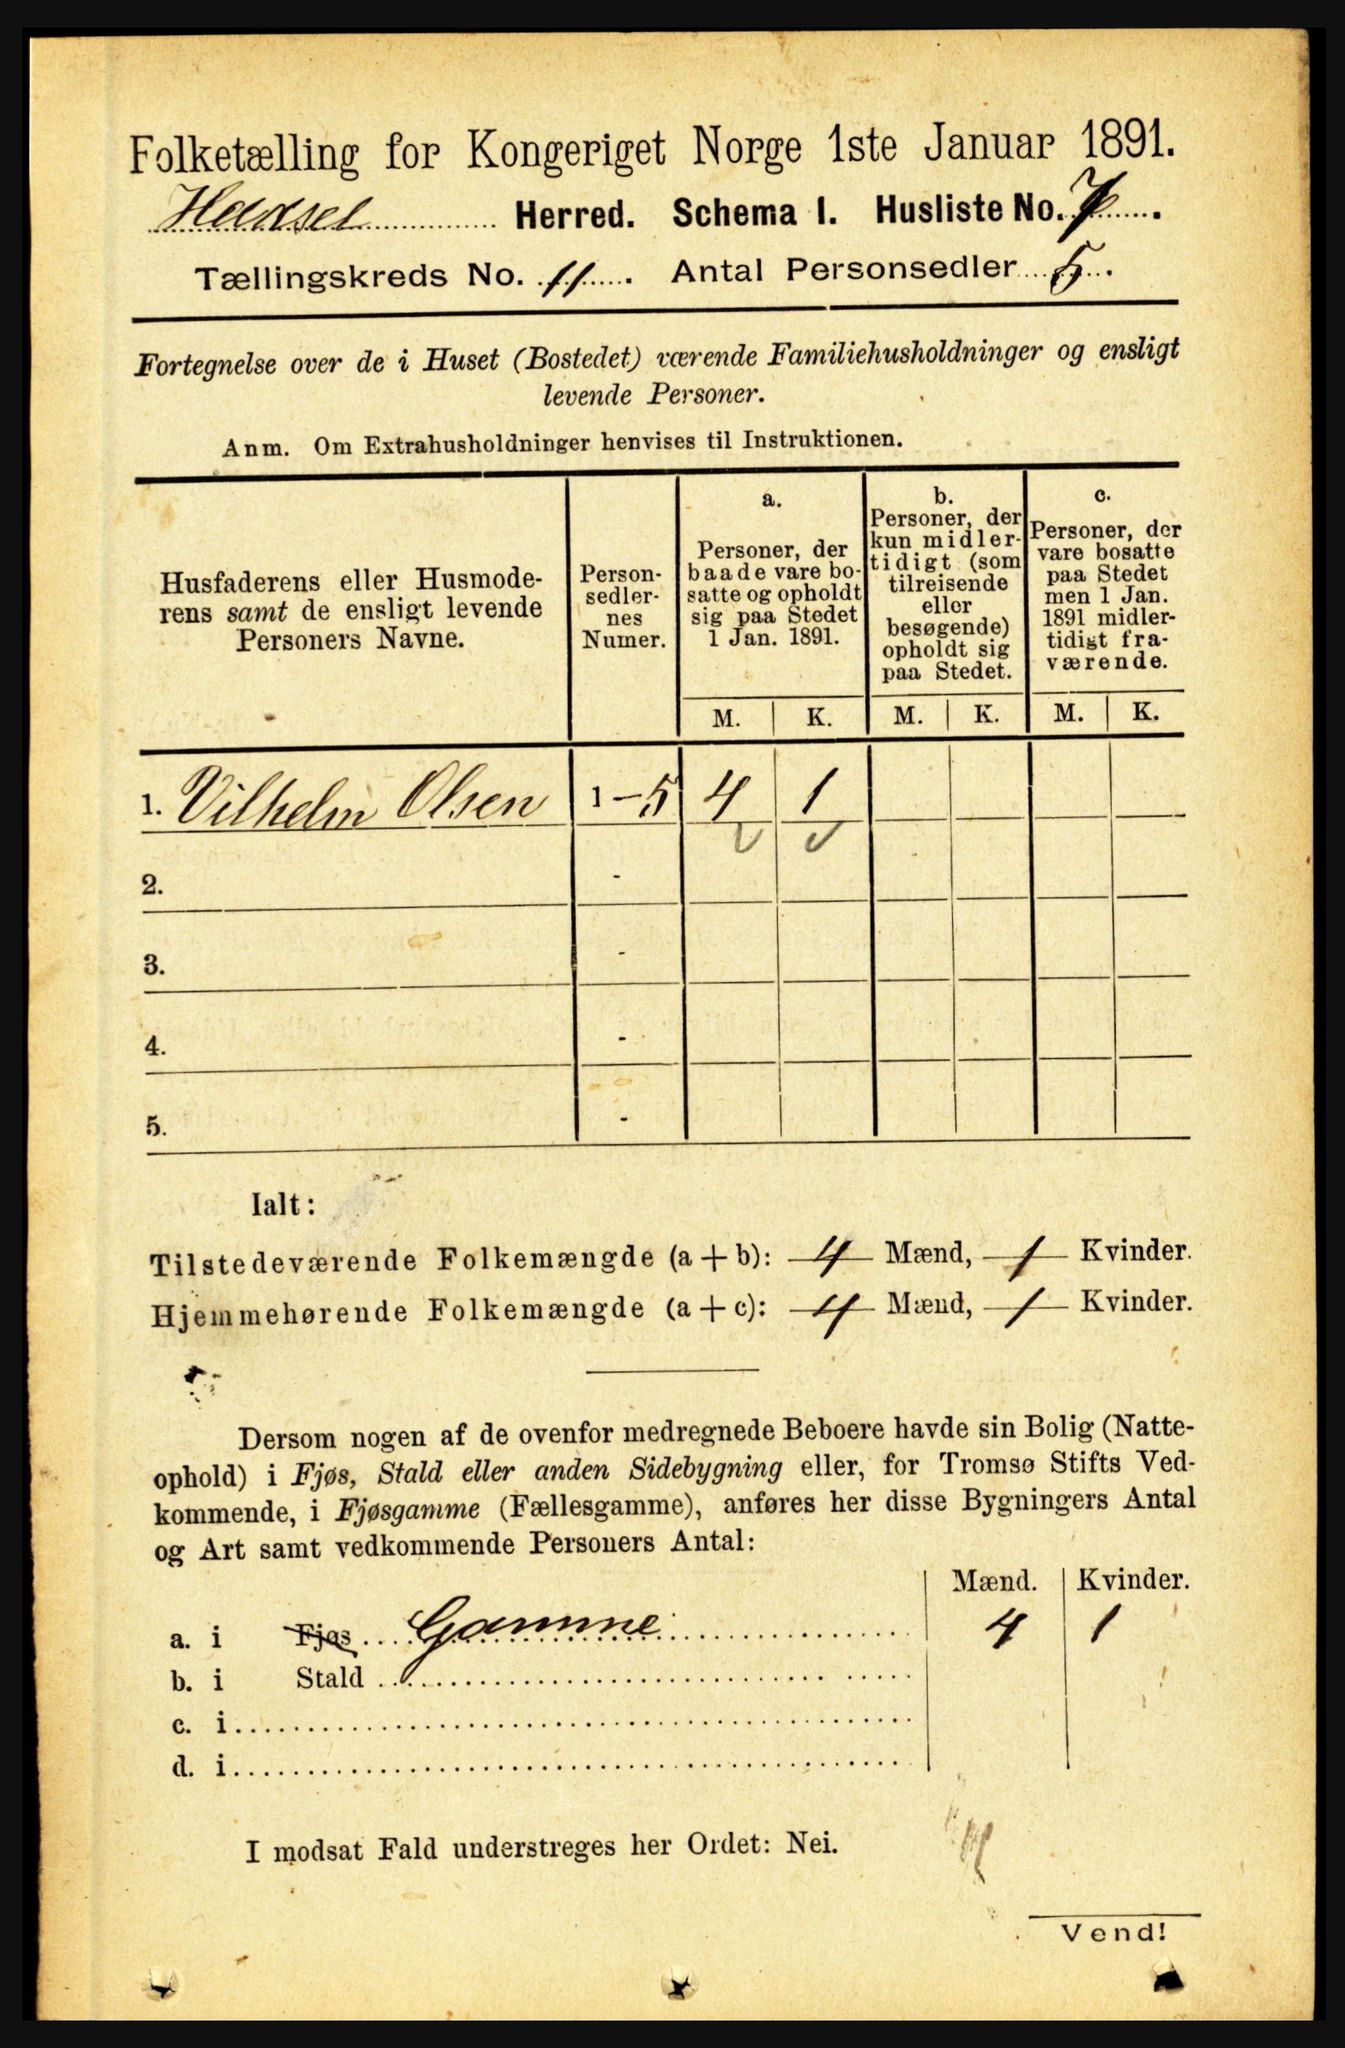 Folketælling for Kongeriget Norge 1ste Januar 1891.
Hadsel Herred. Schema I. Husliste No. 7.
Tællingskreds No. 11. Antal Personsedler 5.
Fortegnelse over de i Huset (Bostedet) værende Familiehusholdninger og ensligt
levende Personer.
Anm. Om Extrahusholdninger henvises til Instruktionen.
Husfaderens eller Husmode-
rens samt de ensligt levende
Personers Navne.
Person-
sedler-
nes
Numer.
a.
Personer, der
baade vare bo-
satte og opholdt
sig paa Stedet
1 Jan. 1891.
b.
Personer, der
kun midler-
tidigt (som
tilreisende
eller
besøgende)
opholdt sig
paa Stedet.
c.
Personer, der
vare bosatte
paa Stedet
men 1 Jan.
1891 midler-
tidigt fra-
værende.
M. K. M. K. M. K.
1. Vilhelm Olsen 1-5 4 1
2. -
3. -
4. -
5. -
Ialt:
Tilstedeværende Folkemængde (a + b): 4 Mænd, 1 Kvinder.
Hjemmehørende Folkemængde (a + c): 4 Mænd, 1 Kvinder.
Dersom nogen af de ovenfor medregnede Beboere havde sin Bolig (Natte-
ophold) i Fjøs, Stald eller anden Sidebygning eller, for Tromsø Stifts Ved-
kommende, i Fjøsgamme (Fællesgamme), anføres her disse Bygningers Antal
og Art samt vedkommende Personers Antal:
Mænd. Kvinder.
a. i Fjøs Gamme 4 1
b. i Stald
c. i
d. i
I modsat Fald understreges her Ordet: Nei.
Vend!